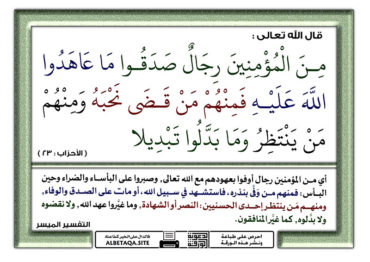 قال الله تعالى :
مِنَ الْمُؤْمِنِينَ رِجَالٌ صَدَقُوا مَا عَاهَدُوا
اللَّهَ عَلَيْهِ فَمِنْهُمْ مَنْ قَضَى نَحْبَهُ وَمِنْهُمْ
مَنْ يَنْتَظِرُ وَمَا بَدَّلُوا تَبْدِيلا
( الأحزاب : ٢٣ )
أي من المؤمنين رجال أوفوا بعهودهم مع الله تعالى، وصبروا على البأساء والضراء وحين
البأس: فمنهم من وَفَّى بنذره، فاستشهد في سبيل الله، أو مات على الصدق والوفاء,
ومنهم مَن ينتظر إحدى الحسنيين: النصر أو الشهادة, وما غيَّروا عهد الله, ولا نقضوه
ولا بدَّلوه, كما غيَّر المنافقون.
التفسير الميسر
ALBETAQA.SITE
احرص على طباعة
ونشر هذه الورقة